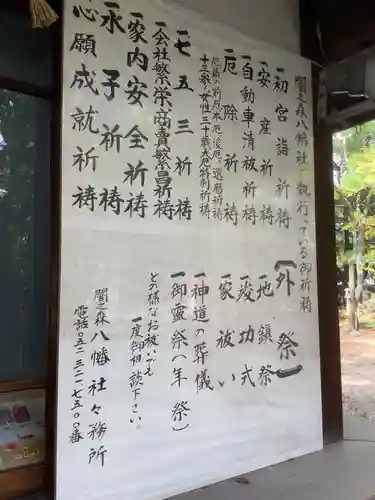 闇之森八幡社で執り行っている御祈祷
一初宮詣祈祷
一安産祈祷
一自動車清祓祈祷
一厄除祈祷
厄歳の前厄本厄後厄、還暦祈祷
十三参り女性三十歳大厄特別祈祷
一七五三祈祷
一会社繁栄、商売繁昌祈祷
一家内安全祈祷
一永子祈祷
一心願成就祈祷
(外祭)
一地鎮祭
一竣功式
一家祓い
一神道の葬儀
一御霊祭(年祭)
どの様なお祓いでも
一度御相談下さい。
闇之森八幡社々務所
電話〇五二 三二一 七五〇〇番